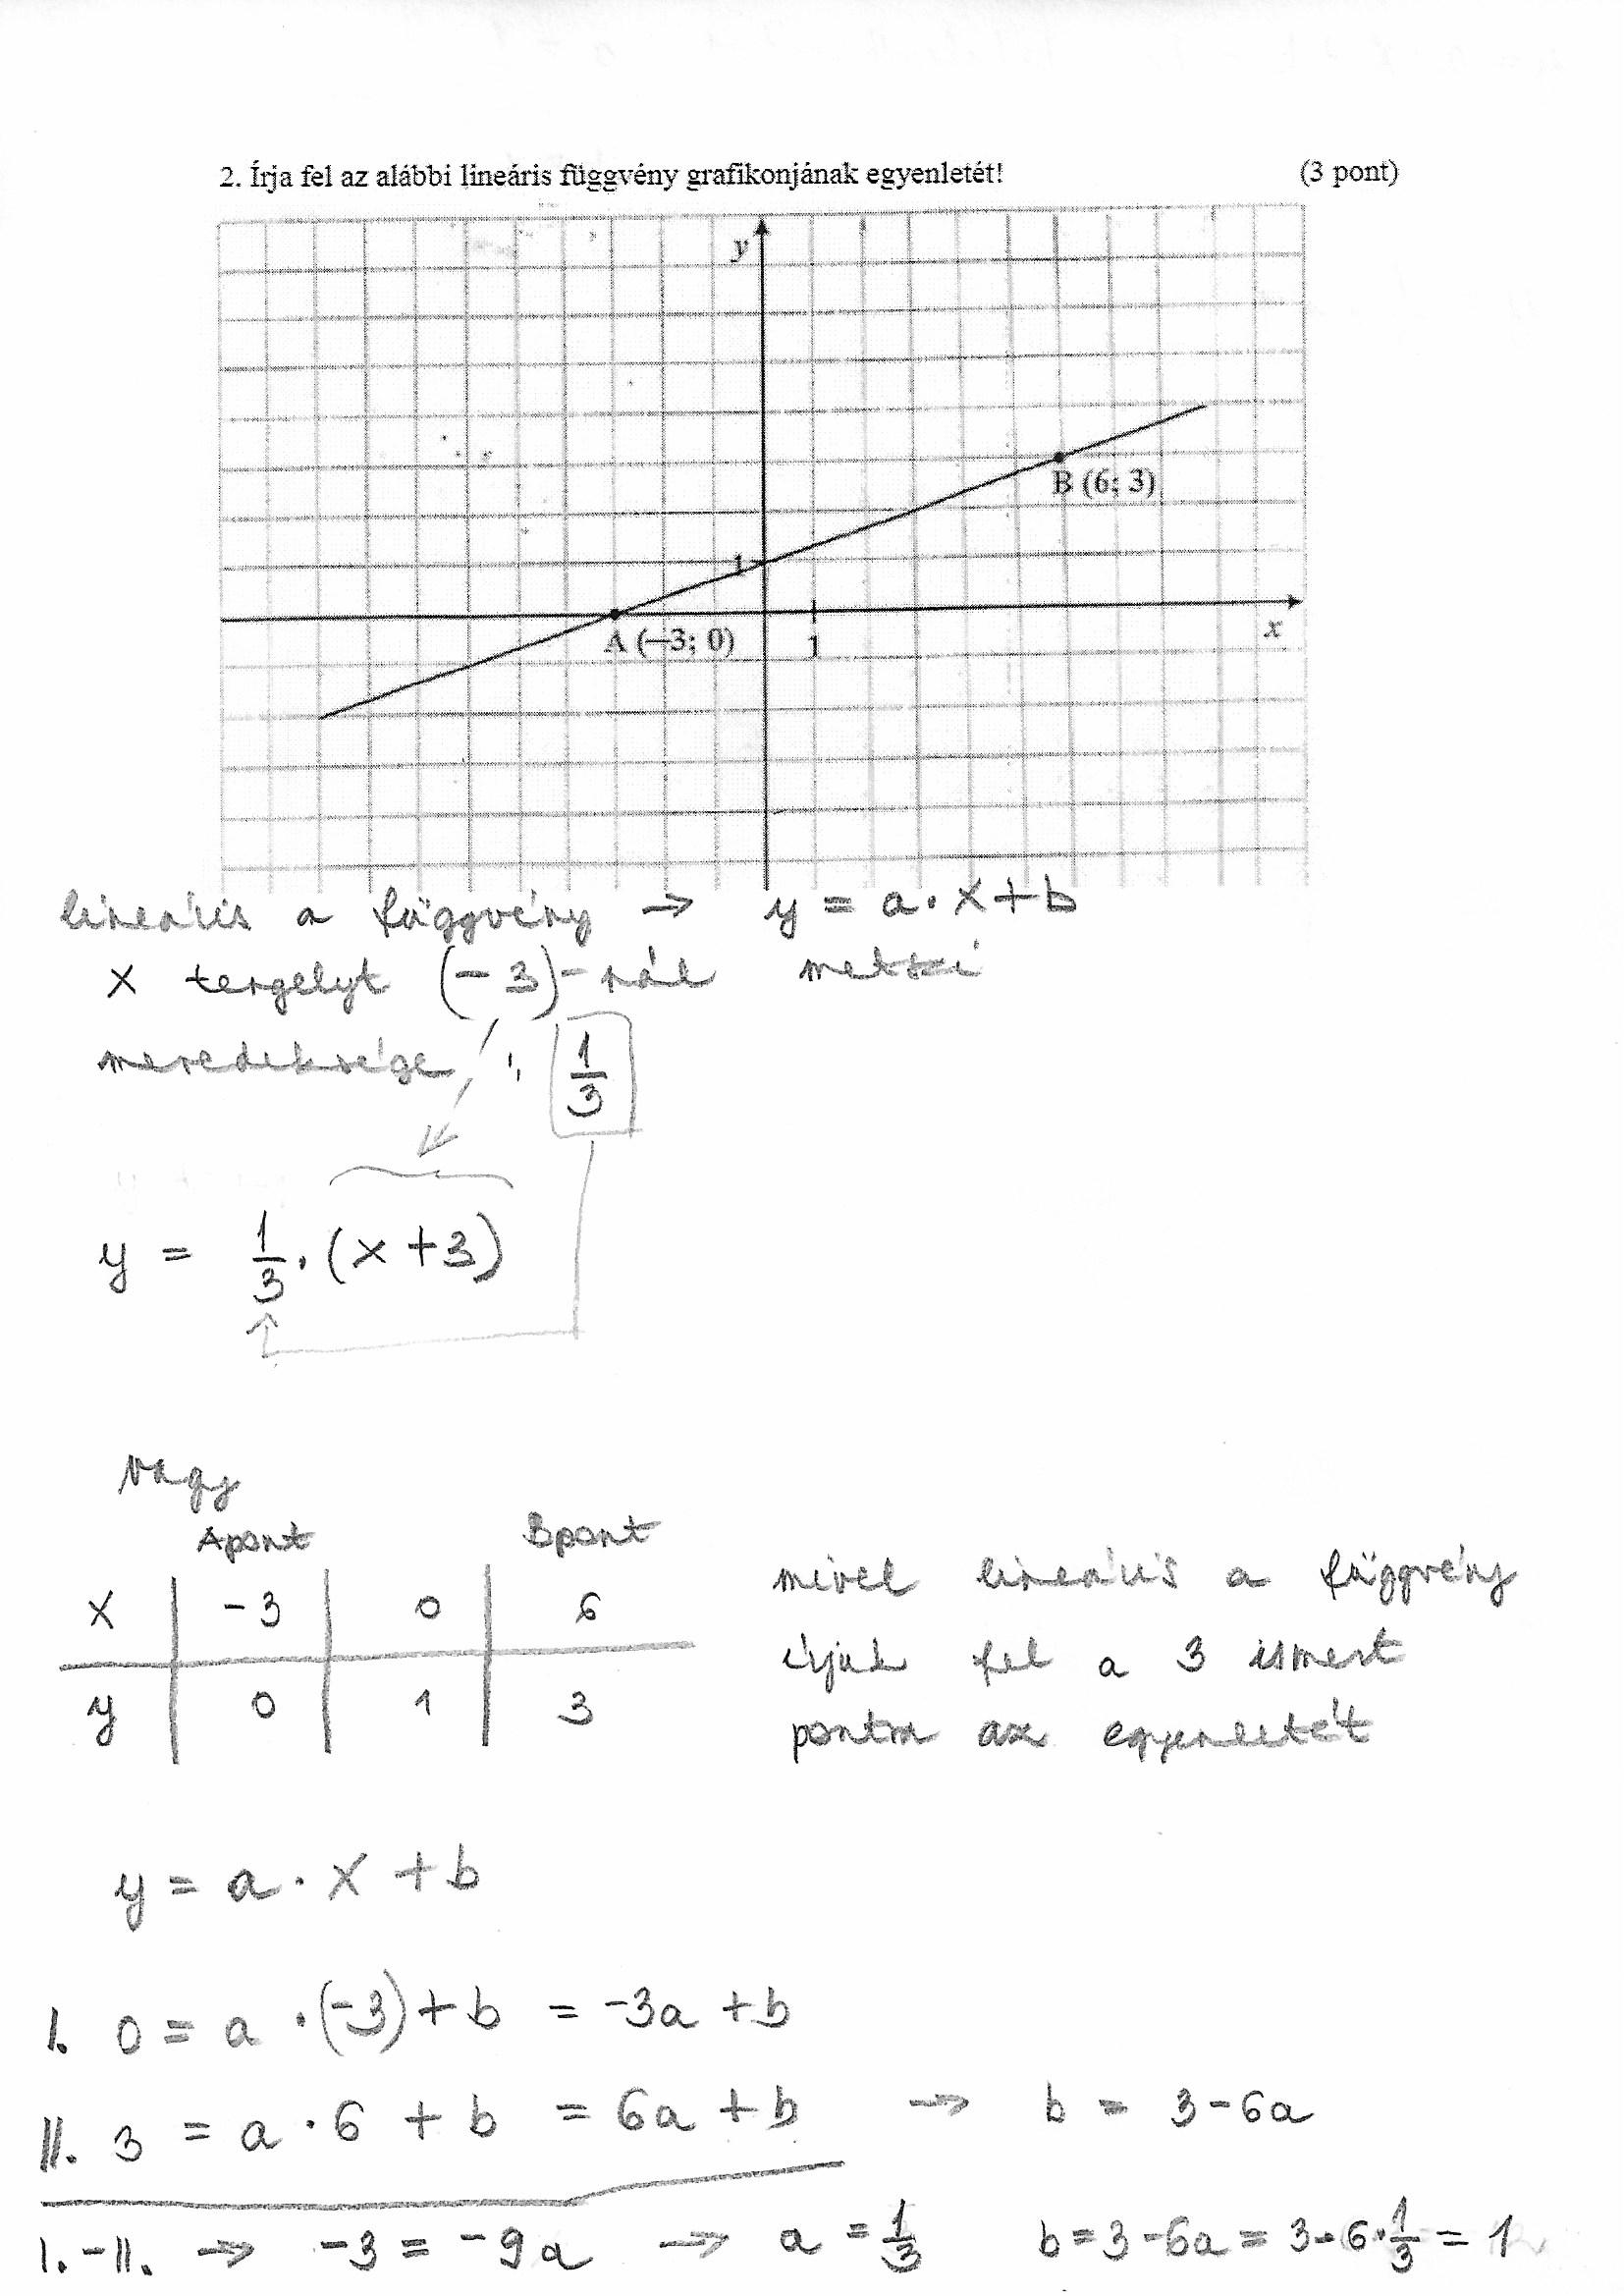 2. Írja fel az alábbi lineáris függvény grafikonjának egyenletét! (3 pont)
y
B (6; 3)
1
A (−3; 0)
1
x
lineáris a függvény → y = a · x + b
x tengelyt (−3)-nál metszi
meredeksége : 1/3
y = 1/3 · (x + 3)
vagy
A pont B pont
x | −3 | 0 | 6
y | 0 | 1 | 3
mivel lineáris a függvény
írjuk fel a 3 ismert
pontra az egyenletét
y = a · x + b
I. 0 = a · (−3) + b = −3a + b
II. 3 = a · 6 + b = 6a + b → b = 3 − 6a
I. − II. → −3 = −9a → a = 1/3 b = 3 − 6a = 3 − 6 · 1/3 = 1